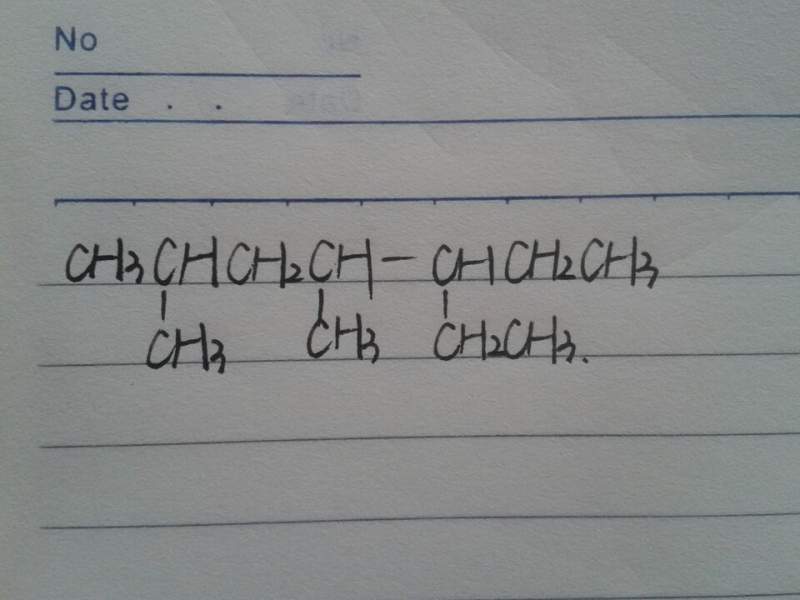 No
Date . .
CH3CHCH2CH-CHCH2CH3
CH3 CH3 CH2CH3.